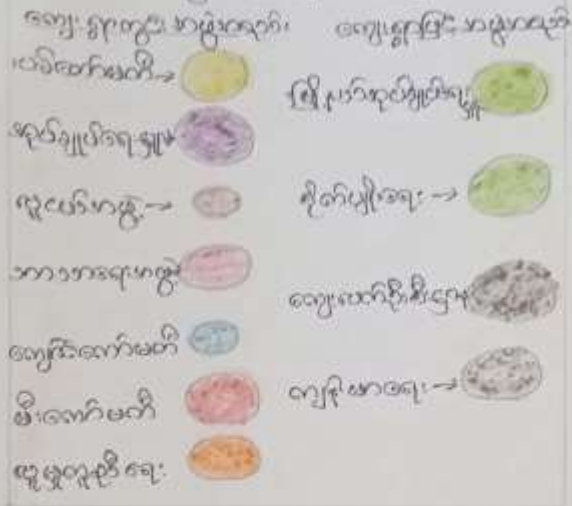 ကျေးရွာတွင်း အဖွဲ့အစည်း
အုပ်ချုပ်ရေးမှူး
လူငယ်အဖွဲ့ →
ဘာသာရေးအဖွဲ့
ကျောင်းကော်မတီ
မီးကော်မတီ
လူမှုကူညီရေး
ကျေးရွာပြင် အဖွဲ့အစည်း
မြို့နယ်အုပ်ချုပ်ရေးမှူး
စိုက်ပျိုးရေး →
ကျေးလက်ဦးစီးဌာန
ကျန်းမာရေး →